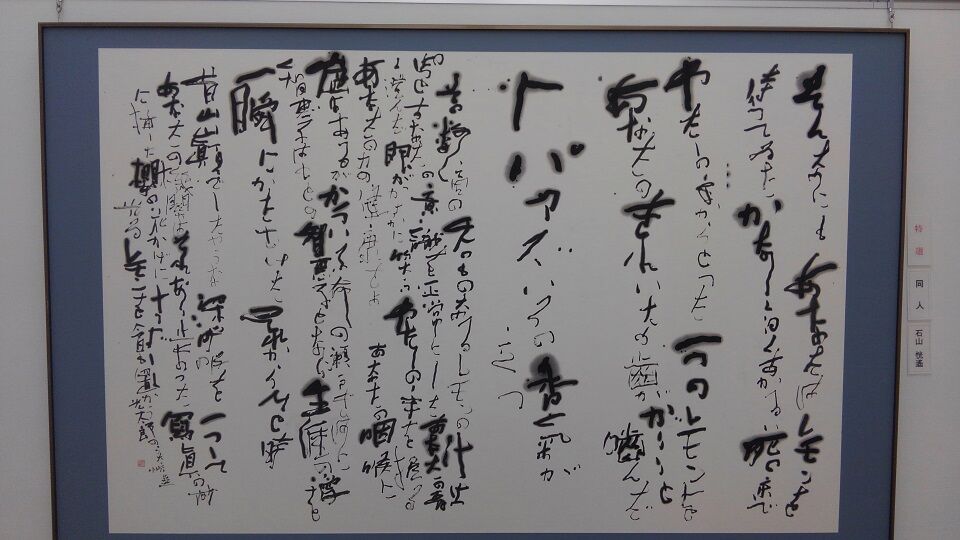 そんなにもあなたはレモンを
待つてゐたかなしく白くあかるい死の床で
わたしの手からとつた一つのレモンを
あなたのきれいな歯ががりりと噛んだ
トパアズいろの香気が
立つ
その数滴の天のものなるレモンの汁は
ぱつとあなたの意識を正常にしたあなたの青
く澄んだ眼がかすかに笑ふわたしの手を握る
あなたの力の健康さよあなたの咽喉に
嵐はあるがかういふ命の瀬戸ぎはに
智恵子はもとの智恵子となり生涯の愛を
一瞬にかたむけたそれからひと時
昔山巓でしたやうな深呼吸を一つして
あなたの機関はそれなり止まつた寫真の前
に挿した桜の花かげにすずしく光るレモンを今日も置かう光太郎の
特選
同人
石山